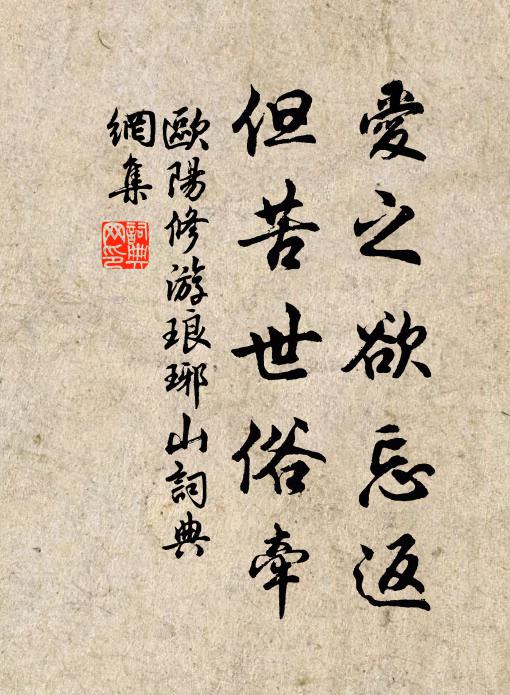 愛之欲忘返
但苦世俗牽
歐陽修游琅琊山詞典
網集
詞典
网印